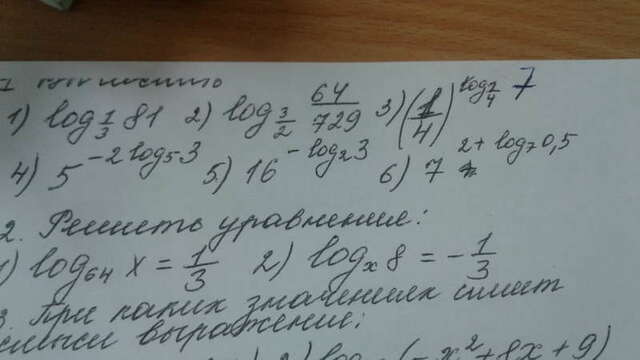 1) log_{1/3} 81 2) log_{3/2} 64/729 3) (1/4)^{log_{1/4} 7}
4) 5^{-2 log_5 3} 5) 16^{-log_2 3} 6) 7^{2 + log_7 0,5}
2. Решить уравнение:
1) log_{64} x = 1/3 2) log_x 8 = -1/3
3. При каких значениях имеет
выражение:
log (-x² + 8x + 9)